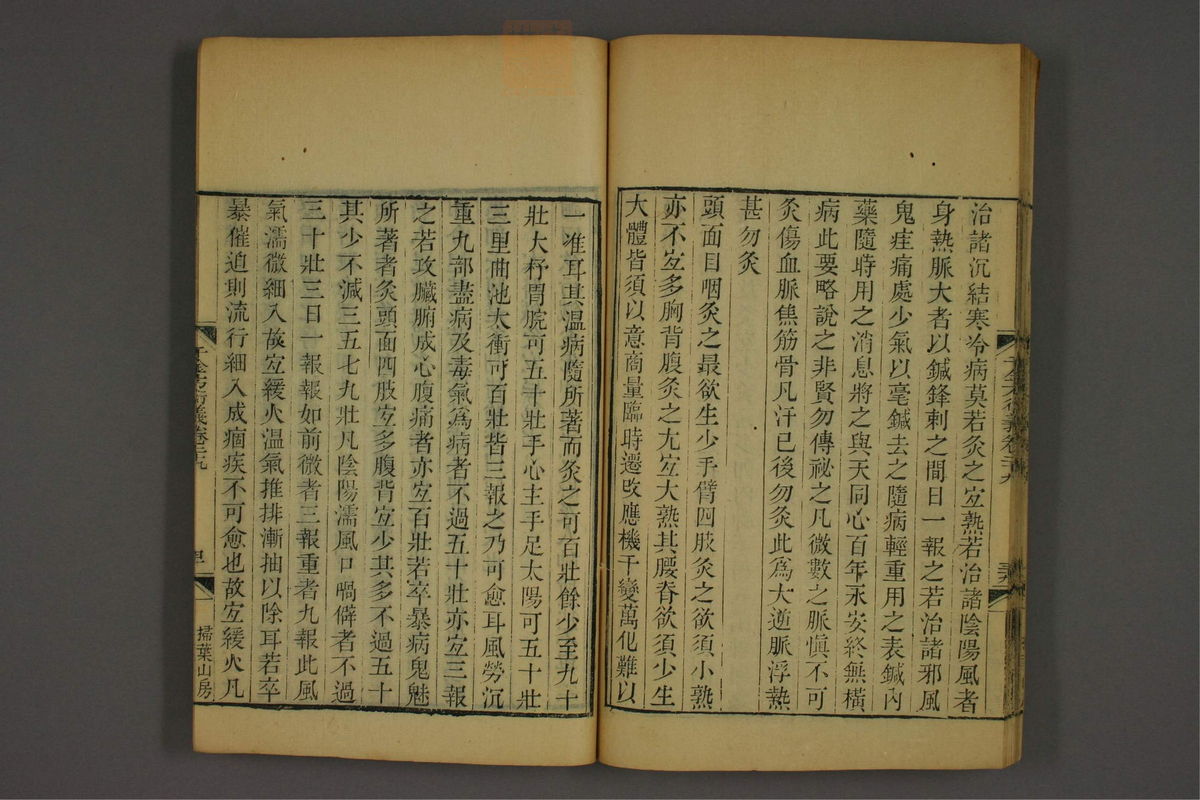 治諸沉結寒冷病莫若灸之宐熟若治諸陰陽風者
身熱脈大者以鍼鋒刺之間日一報之若治諸邪風
鬼疰痛處少氣以毫鍼去之隨病輕重用之表鍼內
藥隨時用之消息將之與天同心百年永安終無橫
病此要略說之非賢勿傳祕之凡微數之脈愼不可
灸傷血脈焦筋骨凡汗已後勿灸此爲大逆脈浮熱
甚勿灸
頭面目咽灸之最欲生少手臂四肢灸之欲須小熟
亦不宐多胸背腹灸之尤宐大熟其腰脊欲須少生
大體皆須以意商量臨時遷改應機千變萬化難以
一准耳其溫病隨所著而灸之可百壯餘少至九十
壯大杼胃脘可五十壯手心主手足太陽可五十壯
三里曲池太衝可百壯皆三報之乃可愈耳風勞沉
重九部盡病及毒氣爲病者不過五十壯亦宐三報
之若攻臟腑成心腹痛者亦宐百壯若卒暴病鬼魅
所著者灸頭面四肢宐多腹背宐少其多不過五十
其少不減三五七九壯凡陰陽濡風口喎僻者不過
三十壯三日一報報如前微者三報重者九報此風
氣濡微細入故宐緩火溫氣推排漸抽以除耳若卒
暴催迫則流行細入成痼疾不可愈也故宐緩火凡
千金方衍義卷二十九
掃葉山房